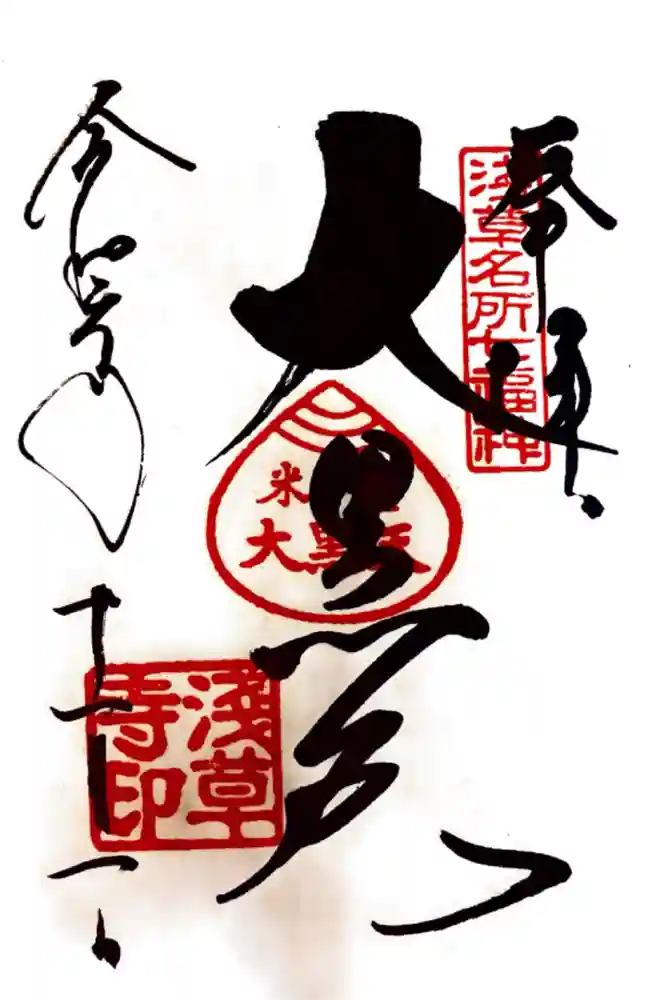 奉拝
浅草名所七福神
大黒天
米
大黒天
淺草寺印
令和
十一
日